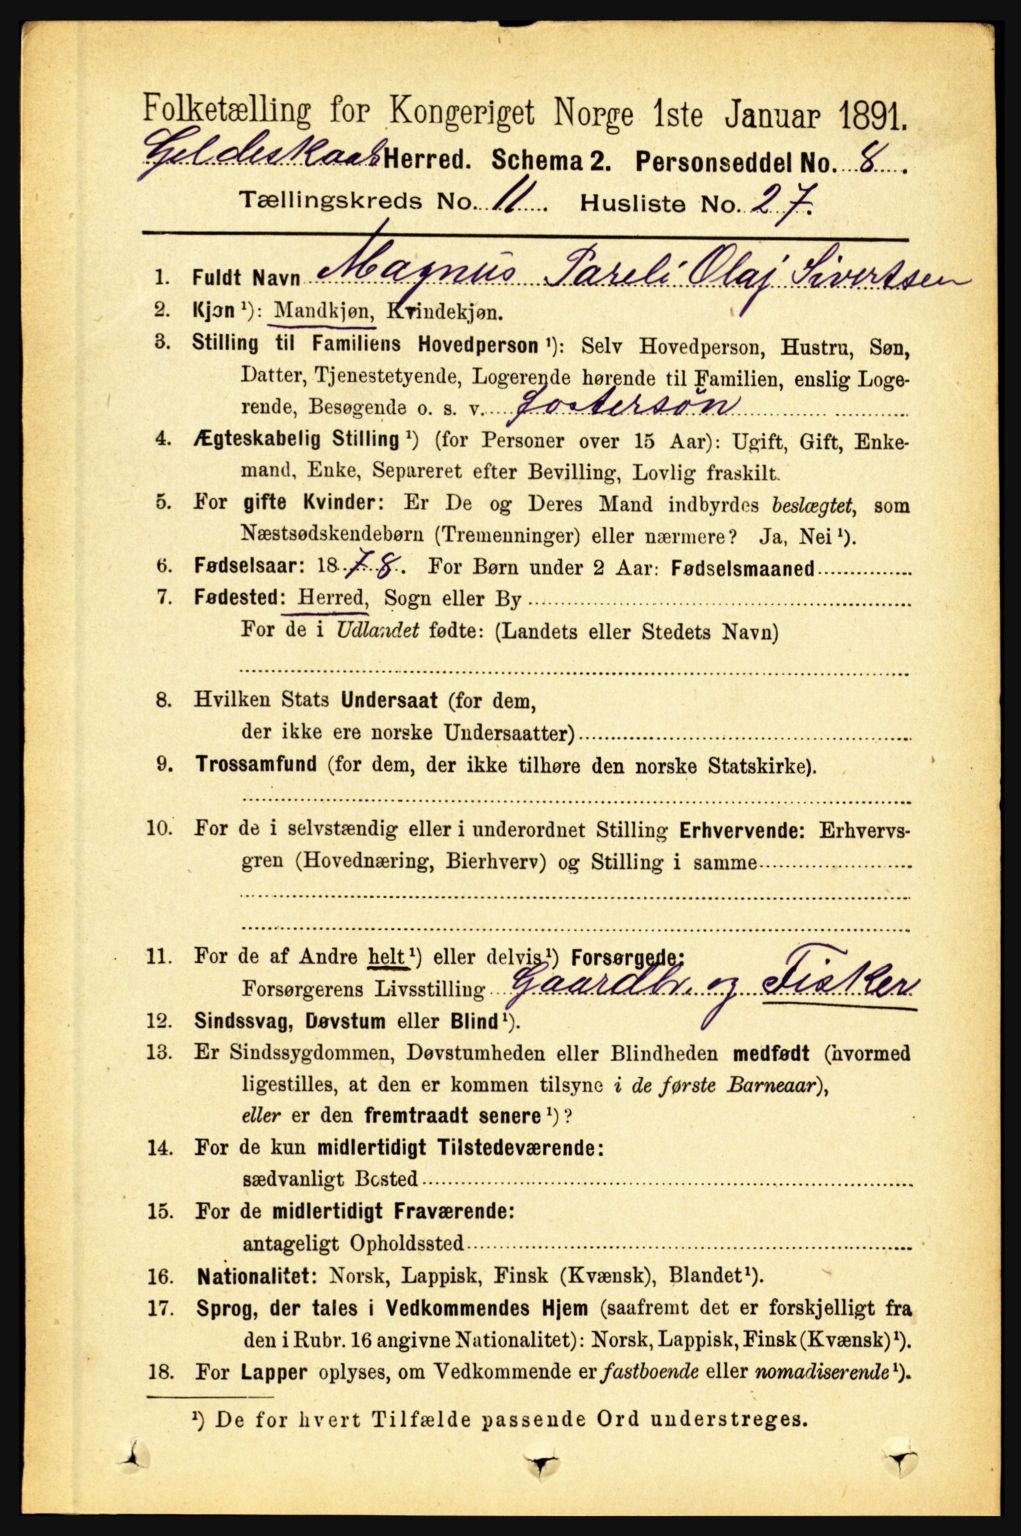 Folketælling for Kongeriget Norge 1ste Januar 1891.
Geldeskaal Herred. Schema 2. Personseddel No. 8.
Tællingskreds No. 11. Husliste No. 27.
1. Fuldt Navn Magnus Pareli Olaj Sivertsen
2. Kjøn ¹): Mandkjøn, Kvindekjøn.
3. Stilling til Familiens Hovedperson ¹): Selv Hovedperson, Hustru, Søn,
Datter, Tjenestetyende, Logerende hørende til Familien, enslig Loge-
rende, Besøgende o. s. v. fostersøn
4. Ægteskabelig Stilling ¹) (for Personer over 15 Aar): Ugift, Gift, Enke-
mand, Enke, Separeret efter Bevilling, Lovlig fraskilt.
5. For gifte Kvinder: Er De og Deres Mand indbyrdes beslægtet, som
Næstsødskendebørn (Tremenninger) eller nærmere? Ja, Nei ¹).
6. Fødselsaar: 1878. For Børn under 2 Aar: Fødselsmaaned
7. Fødested: Herred, Sogn eller By
For de i Udlandet fødte: (Landets eller Stedets Navn)
8. Hvilken Stats Undersaat (for dem,
der ikke ere norske Undersaatter)
9. Trossamfund (for dem, der ikke tilhøre den norske Statskirke).
10. For de i selvstændig eller i underordnet Stilling Erhvervende: Erhvervs-
gren (Hovednæring, Bierhverv) og Stilling i samme
11. For de af Andre helt ¹) eller delvis ¹) Forsørgede:
Forsørgerens Livsstilling Gaardbr. og Fisker
12. Sindssvag, Døvstum eller Blind ¹).
13. Er Sindssygdommen, Døvstumheden eller Blindheden medfødt (hvormed
ligestilles, at den er kommen tilsyne i de første Barneaar),
eller er den fremtraadt senere ¹)?
14. For de kun midlertidigt Tilstedeværende:
sædvanligt Bosted
15. For de midlertidigt Fraværende:
antageligt Opholdssted
16. Nationalitet: Norsk, Lappisk, Finsk (Kvænsk), Blandet ¹).
17. Sprog, der tales i Vedkommendes Hjem (saafremt det er forskjelligt fra
den i Rubr. 16 angivne Nationalitet): Norsk, Lappisk, Finsk (Kvænsk) ¹).
18. For Lapper oplyses, om Vedkommende er fastboende eller nomadiserende ¹).
¹) De for hvert Tilfælde passende Ord understreges.